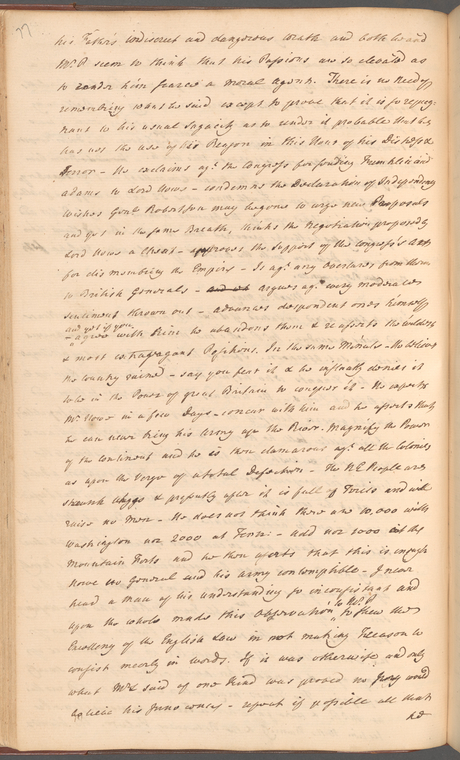 his Father's indiscreet and dangerous wrath and both he and
Mr. P seem to think that his Passions are so elevated as
to render him scarce a moral Agent. There is no Need of
remembring what he said except to prove that it is so repug
nant to his usual Sagacity as to render it probable that he
has not the use of his Reason in this Hour of his Distress &
Terror – He exclaims agt. the Congress for sending Trumble and
Adams to Lord Howe – condemns the Declaration of Independency
wishes Govr. Robertson may be gone to urge new Proposals
and yet in the same Breath, thinks the Negotiation proposed by
Lord Howe a Cheat – approves the Support of the Congress's Army
for dismembring the Empire – Is agt. any Overtures from them
to British Generals – argues agt. every moderate
Sentiment thrown out – advances despondent ones himself
and yet if you
agree with Him he abandons them & reasserts the wildest
& most extravagant Positions. In the same Minute – He believes
the Country ruined – say you fear it & he instantly denies it
to be in the Power of great Britain to conquer it – He expects
Mr. Howe in a few Days – concur with him and he asserts that
he can never bring his Army up the River. Magnify the Power
of the Continent and he is then clamorous agt. all the Colonies
as upon the Verge of a total Defection – The N E People are
staunch Whiggs & presently after it is full of Tories and will
raise no Men – He does not think there are 10,000 with
Washington nor 2000 at Tionn: – add nor 1000 at the
Mountain Forts and he then asserts that this is enough
Howe no General and his Army contemptible – I never
heard a Man of his understanding so inconsistent and
upon the whole made this Observation to Mr. P to shew the
Excellency of the English Law in not making Treason to
consist meerly in words. If it was otherwise and only
what Mr. L said of one Kind was proved no Jury would
believe his Innocency – repeat if possible all that
he